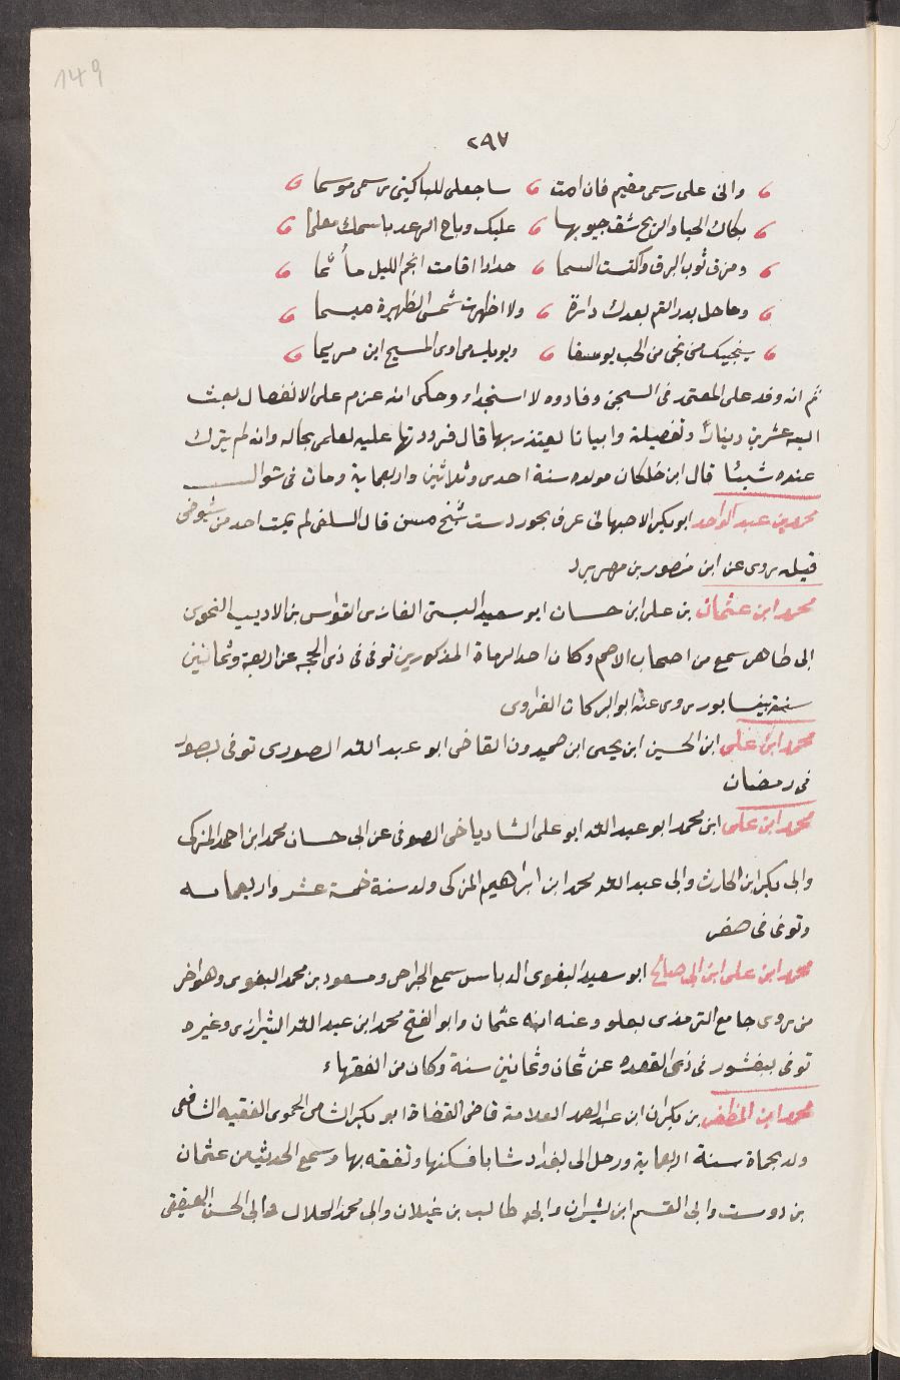 149
٢٩٧
واني على رسمي مقيم فان امت ، ساجعل للباكين رسمي موسما
بكاك الحيا والريح شقت جيوبها ، عليك وناح الرعد باسمك معلما
ومزق ثوب البرق واكتست السما ، حدادا اقامت انجم الليل مأتما
وما حل بدر التم بعدك دارة ، ولا اظهرت شمس الظهيرة مبسما
ينجيك من نجى من الجب يوسفا ، ويؤيك من اوى المسيح ابن مريما
ثم انه وفد على المعتمد في السجن وفادة لا استجداء وحكى انه عزم على الانفصال بعث
اليه عشرين دينارا وتفصيلة وابياتا يعتذر بها قال فرددتها عليه لعلمي بحاله وانه لم يترك
عنده شيئا قال ابن خلكان مولده سنة احدى وثلاثين واربعماية ومات في شوال
محمد بن عبد الواحد ابو بكر الاصبهاني عرف بجوردست شيخ مسن قال السلفي لم يمت احد من شيوخي
قبله يروى عن ابن منصور بن مهربزد
محمد ابن عثمان بن على ابن حسان ابو سعيد البستي الغازي القواس بن الاديب النحوي
ابى طاهر سمع من اصحاب الاصم وكان احد الرماة المذكورين توفى في ذى الحجة عن اربعة وثمانين
سنة بنيسابور روى عنه ابو البركات الفراوى
محمد ابن على ابن الحسين ابن يحيى ابن حميدون القاضى ابو عبد الله الصورى توفى بصور
في رمضان
محمد ابن على ابن محمد ابو عبد الله ابو على الشادياخى الصوفى عن ابى حسان محمد ابن احمد المزكى
وابى بكر ابن الحارث وابى عبد الله محمد ابن ابراهيم المزكى ولد سنة خمسة عشر واربعمايه
وتوفى فى صفر
محمد ابن على ابن ابى صالح ابو سعيد البغوى الدباس سمع الجراحى ومسعود بن محمد البغوى وهو اخر
من روى جامع الترمذى بعلو وعنه ابنه عثمان وابو الفتح محمد ابن عبد الله الشيرازى وغيره
توفى ببغشور فى ذى القعده عن ثمان وثمانين سنة وكان من الفقهاء
محمد ابن المظفر بن بكران ابن عبد الصمد العلامة قاضى القضاة ابو بكر الشامى الحموى الفقيه الشافعى
ولد بحماة سنة اربعماية ورحل الى بغداد شابا فسكنها وتفقه بها وسمع الحديث من عثمان
بن دوست وابى القسم ابن بشران وابى طالب بن غيلان وابى محمد الخلال وابى الحسن العتيقى